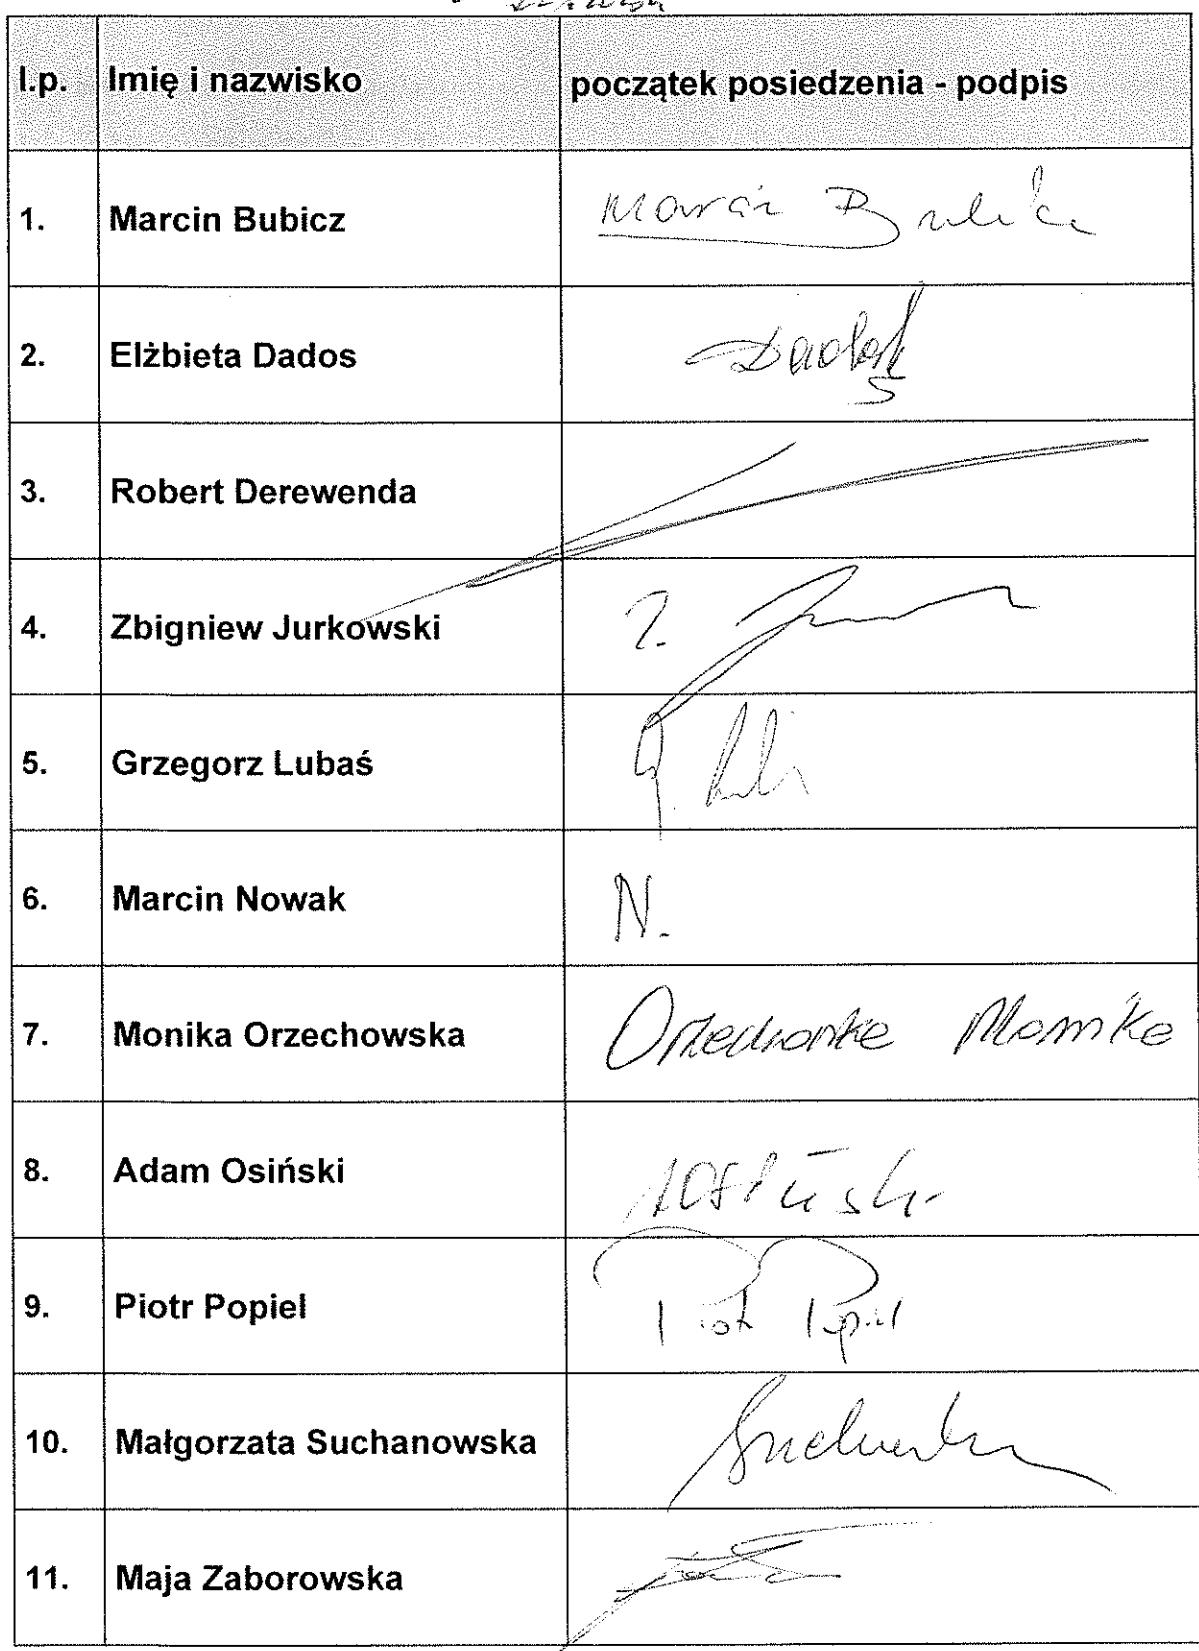 l.p. Imię i nazwisko początek posiedzenia - podpis
1. Marcin Bubicz Marcin
2. Elżbieta Dados Dados
3. Robert Derewenda
4. Zbigniew Jurkowski
5. Grzegorz Lubaś
6. Marcin Nowak N.
7. Monika Orzechowska Orzechowska Monika
8. Adam Osiński AOsiński
9. Piotr Popiel Piotr Popiel
10. Małgorzata Suchanowska
11. Maja Zaborowska